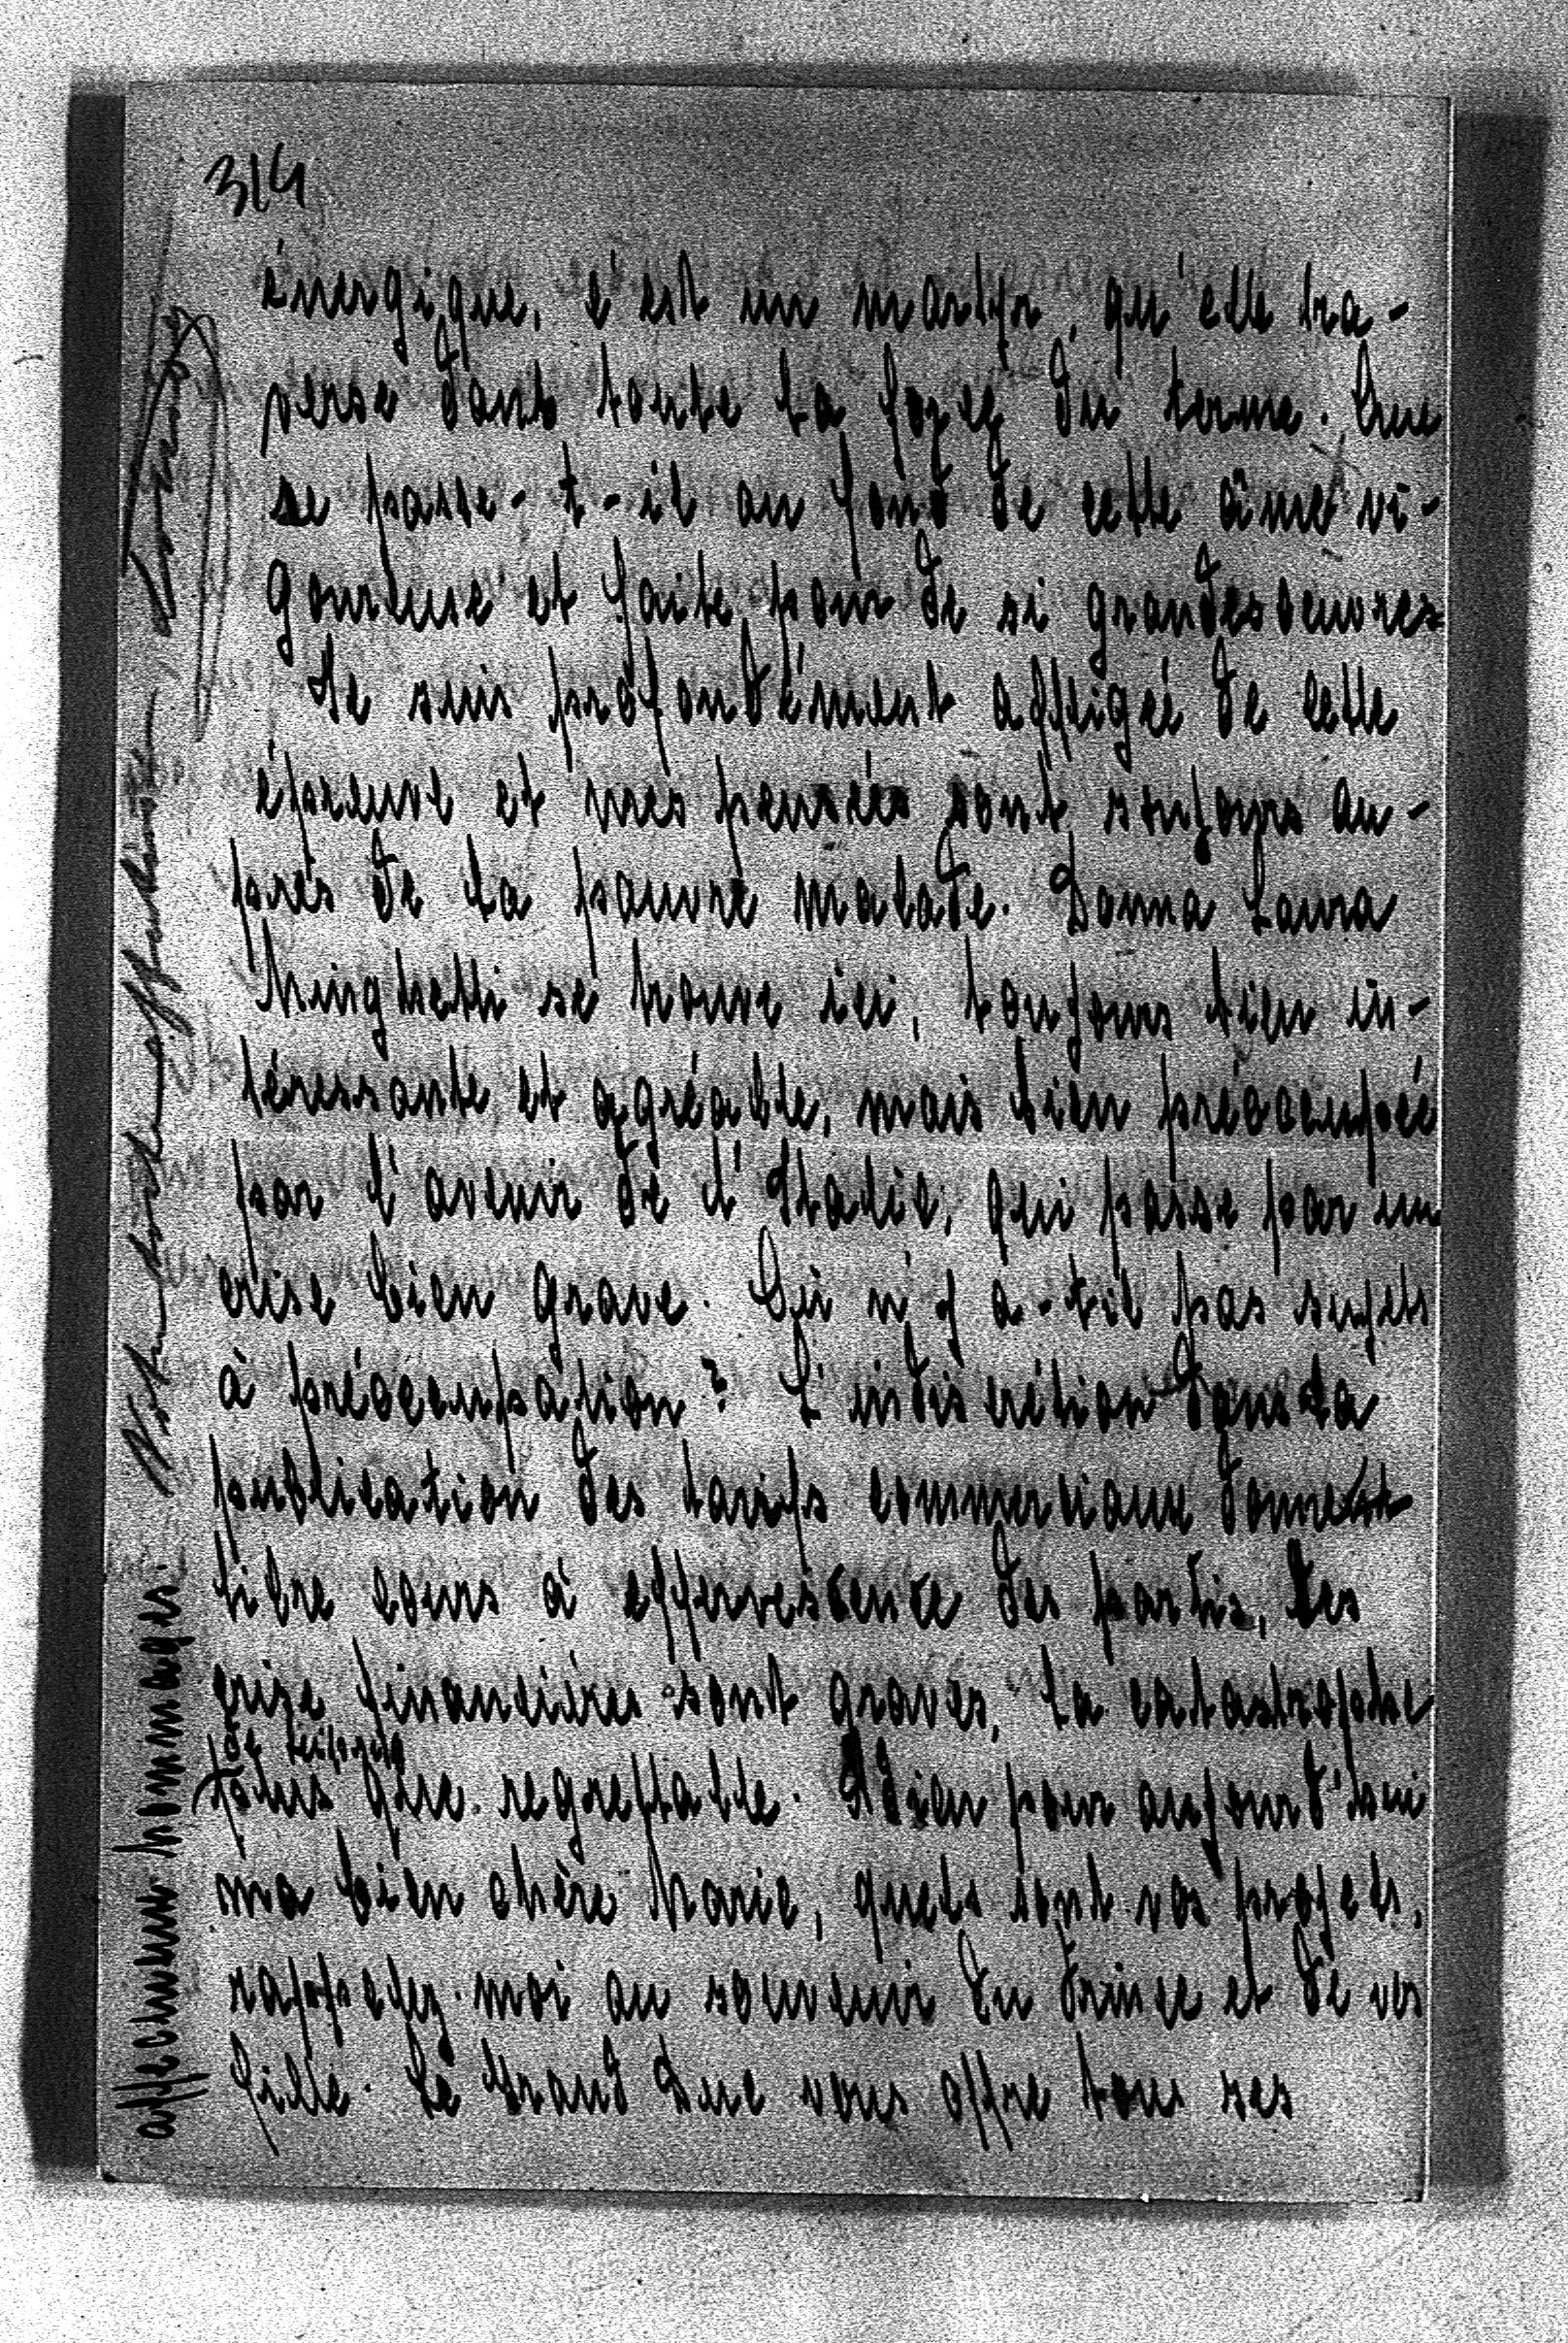 314
énergique, c'est un martyr, qu'elle tra-
verse dans toute la force du terme. Que
se passe-t-il au fond de cette âme vi-
goureuse et faite pour de si grandes oeuvres
Je suis profondément affligée de cette
épreuve et mes pensées sont toujours au-
près de la pauvre malade. Donna Laura
Minghetti se trouve ici, toujours bien in-
téressante et agréable, mais bien préoccupée
par l'avenir de l'Italie, qui passe par un
crise bien grave. Où n'y a-t-il pas sujets
à préoccupation? L'indiscrétion dans la
publication des tarifs commerciaux donnent
libre cours à effervescence des partis, les
crise financières sont graves, la catastrophe
de Leipzig
plus que regrettable. Adieu pour aujourd'hui
ma bien chère Marie, quels sont vos projets,
rappelez-moi au souvenir du Prince et de vos
fille. Le Grand Duc vous offre tous ses
affectueux hommages.